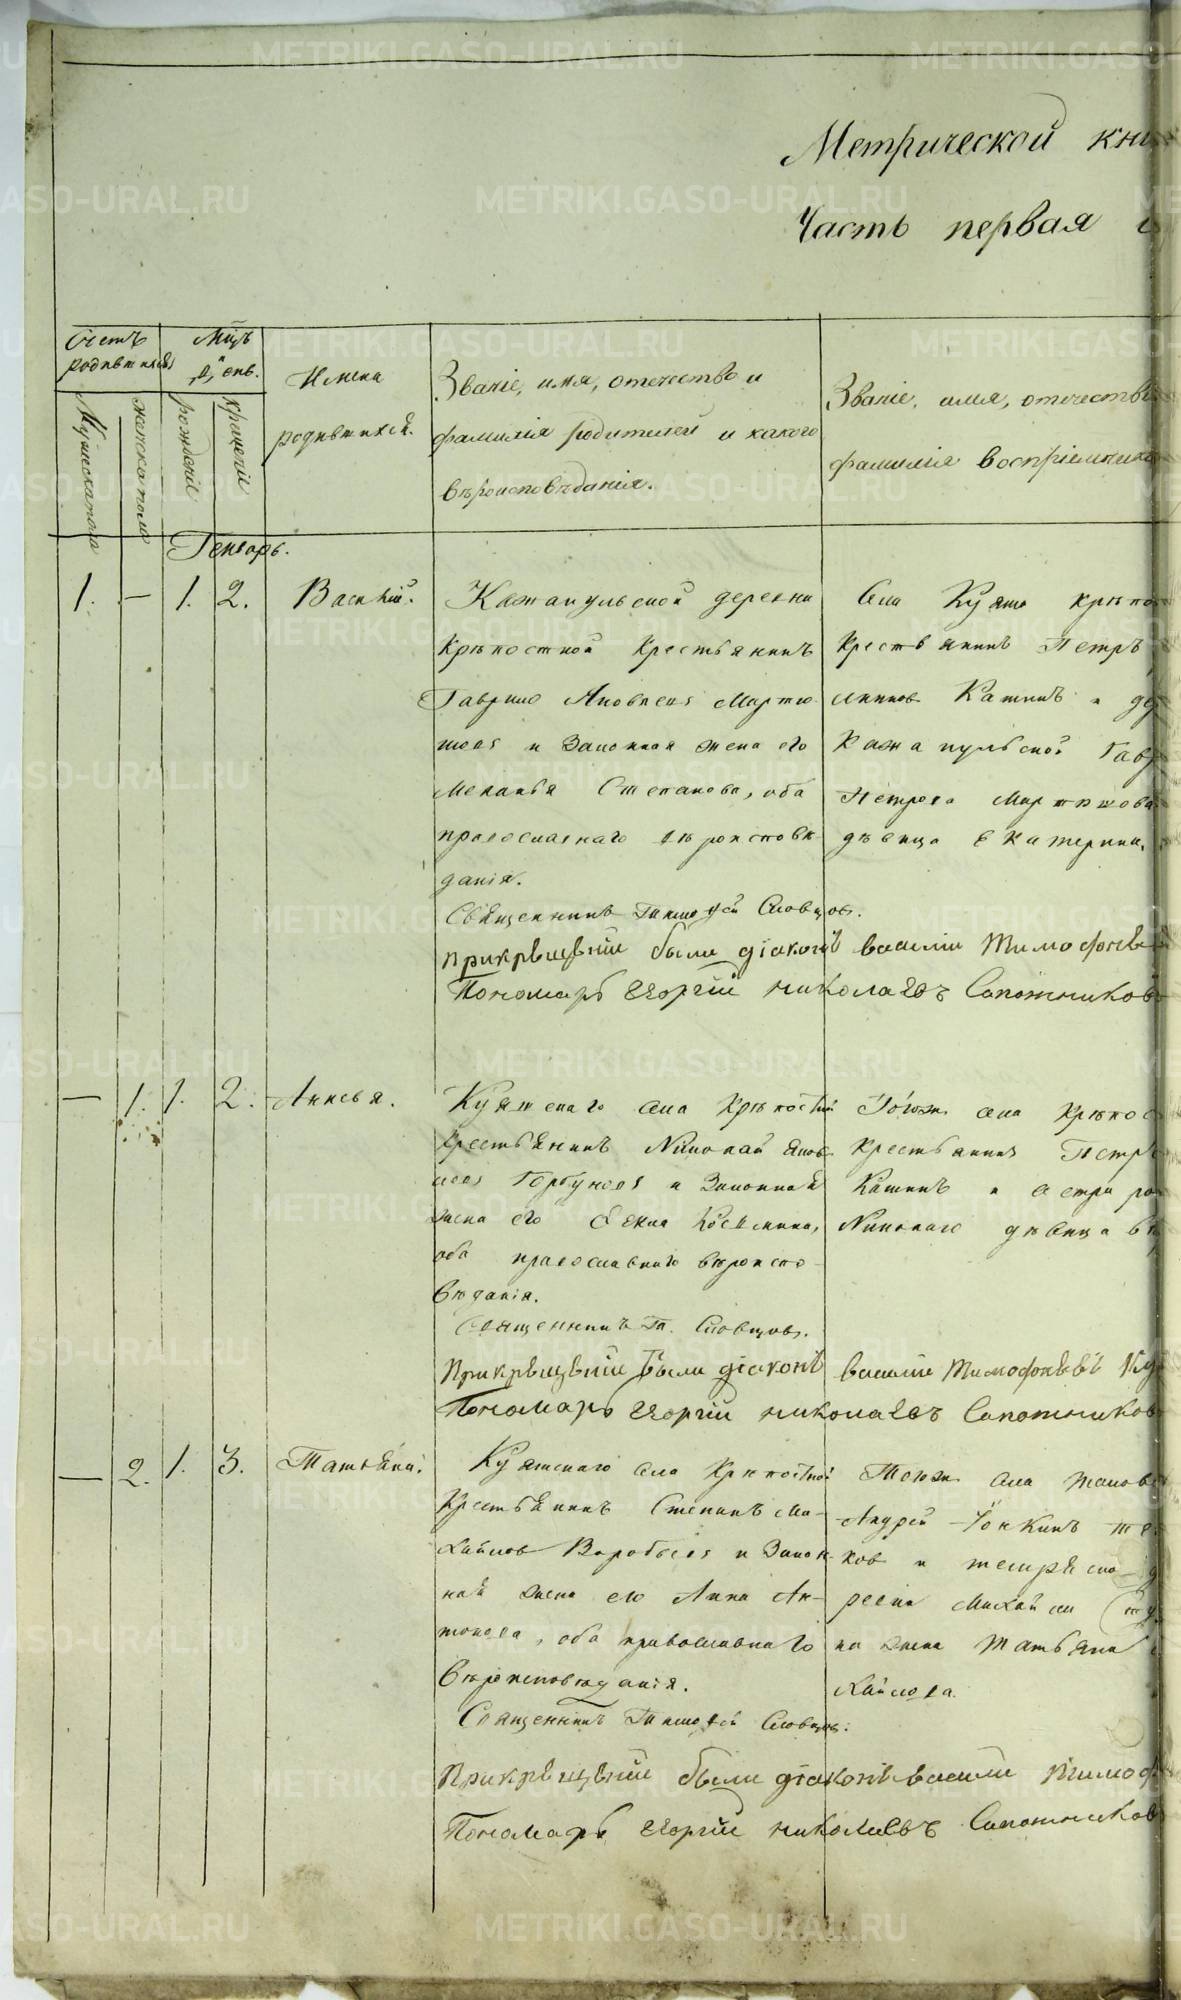 Метрической кни
Часть первая
Счетъ родившихся
Мцъ и день.
Мужеска пола
женска пола
рожденія
крещенія
Имена
родившихся.
Званіе, имя, отечество и
фамилія родителей и какого
вѣроисповѣданія.
Званіе, имя, отечество
фамилія воспріемник
Генварь.
1. — 1. 2. Василій.
деревни
Крѣпостной Крестьянинъ
Гаврило Яковлевъ Мартю
шевъ и Законная жена его
Меланья Степанова, оба
православнаго вѣроисповѣ
данія.
Священникъ Тимофей Словцовъ.
Села Куяша крѣпо
Крестьянинъ Петръ
Кашинъ и де
Гав
Петрова Мартюшова
дѣвица Екатерина.
Прикрѣщеніи были діаконъ василіи Тимофѣев
Пономарь Георгіи николаевъ Сапожников
— 1. 1. 2. Анисья.
Куяшскаго села Крѣпостной
Крестьянинъ Николай Яков
левъ Горбуновъ и Законная
жена его
оба православнаго вѣроиспо
вѣданія.
Священникъ Ти. Словцовъ.
Тогоже села Крѣпос
Крестьянинъ Петръ
Кашинъ и сестра ро
Николаю дѣвица
Прикрѣщеніи были діаконъ василіи Тимофѣевъ
Пономарь Георгіи николаевъ Сапожников
— 2. 1. 3. Татьяна.
Куяшскаго села Крѣпостной
Крестьянинъ Степанъ Ми-
хайловъ Воробьевъ и Закон
ная жена его Анна Ан-
тонова, оба православнаго
вѣроисповѣданія.
Священникъ Тимофей Словцовъ.
Тогоже села
Андрей
ков и
Михайла
на жена Татьяна
хайлова.
Прикрѣщеніи были діаконъ василіи Тимоф
Пономарь Георгіи николаевъ Сапожников
METRIKI.GASO-URAL.RU